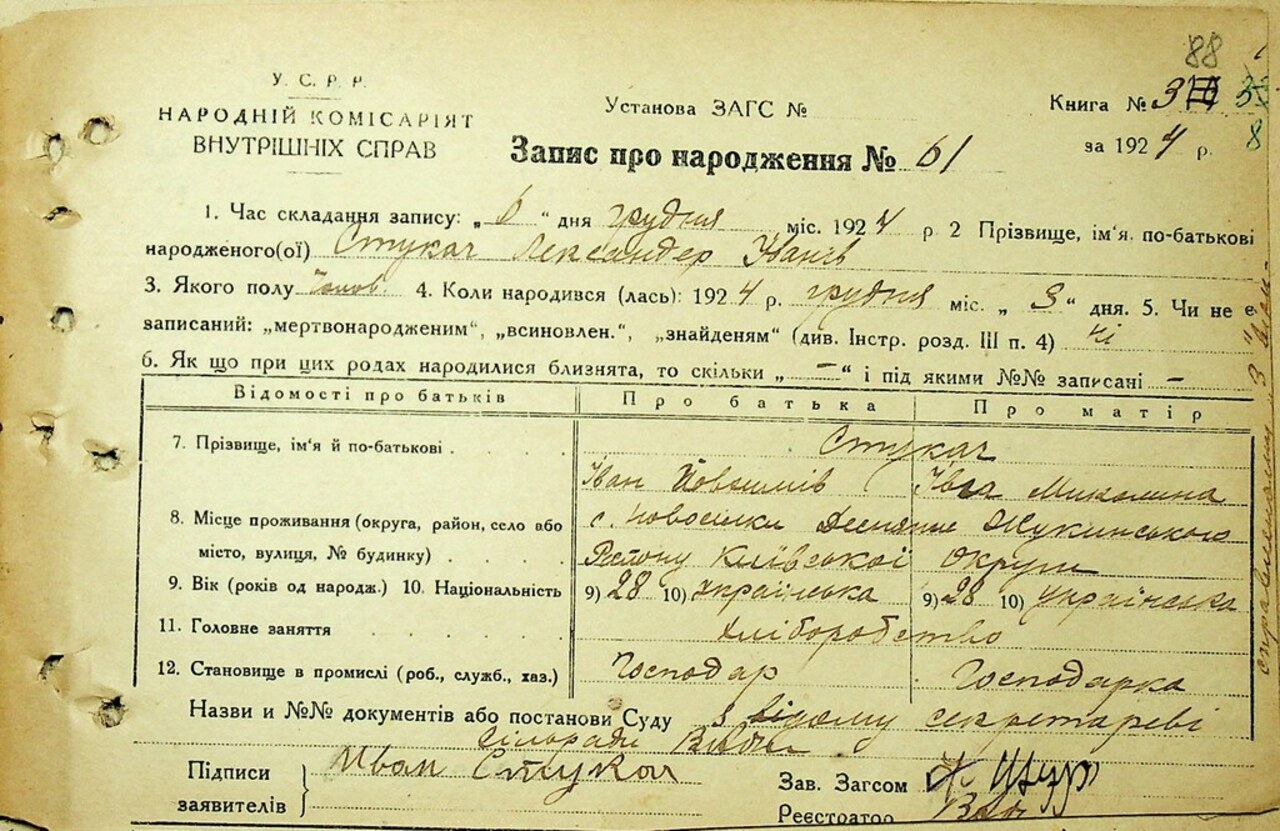 88
У. С. Р. Р.
НАРОДНІЙ КОМІСАРІЯТ
ВНУТРІШНІХ СПРАВ
Установа ЗАГС №
Книга № 3
за 1924 р. 8
Запис про народження № 61
1. Час складання запису: „6“ дня грудня міс. 1924 р 2 Прізвище, ім'я. по-батькові
народженого(ої) Стукач Лександер Іванів
3. Якого полу Чолов. 4. Коли народився (лась): 1924 р. грудня міс. „3“ дня. 5. Чи не є
записаний: „мертвонародженим“, „всиновлен.“, „знайденям“ (див. Інстр. розд. III п. 4) ні
6. Як що при цих родах народилися близнята, то скільки „—“ і під якими №№ записані —
Відомості про батьків Про батька Про матір
7. Прізвище, ім'я й по-батькові Стукач
Іван Іва Миколина
8. Місце проживання (округа, район, село або с. Новосілки Жукинського
місто, вулиця, № будинку) Району Київської Округи
9. Вік (років од народж.) 10. Національність 9) 28 10) Українська 9) 28 10) Українська
11. Головне заняття Хліборобство
12. Становище в промислі (роб., служб., хаз.) Господар Господарка
Назви и №№ документів або постанови Суду з відому секретареві
сільради
Підписи Иван Стукач
заявителів
Зав. Загсом
Реєстратор